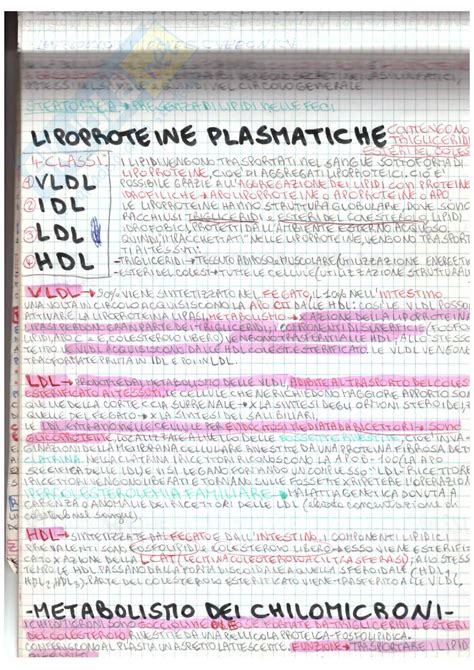 STEATORREA → PRESENZA DI LIPIDI NELLE FECI
LIPOPROTEINE PLASMATICHE
CONTENGONO
TRIGLICERIDI
4 CLASSI
① VLDL
② IDL
③ LDL
④ HDL
I LIPIDI VENGONO TRASPORTATI NEL SANGUE SOTTOFORMA DI
LIPOPROTEINE, CIOÈ DI AGGREGATI LIPOPROTEICI. CIÒ È
POSSIBILE GRAZIE ALL'AGGREGAZIONE DEI LIPIDI CON PROTEINE
IDROFILICHE → APOLIPOPROTEINE O APOPROTEINE O APO
LE LIPOPROTEINE HANNO STRUTTURA GLOBULARE, DOVE SONO
RACCHIUSI TRIGLICERIDI e ESTERI DEL COLESTEROLO, LIPIDI
IDROFOBICI, PROTETTI DALL'AMBIENTE ESTERNO ACQUOSO.
QUINDI "IMPACCHETTATI" NELLE LIPOPROTEINE, VENGONO TRASPORTA
TI AI TESSUTI:
-TRIGLICERIDI → TESSUTO ADIPOSO e MUSCOLARE (UTILIZZAZIONE ENERGETIC
-ESTERI DEL COLEST → TUTTE LE CELLULE (UTILIZZAZIONE STRUTTURAL
VLDL → 90% VIENE SINTETIZZATO NEL FEGATO, IL 10% NELL'INTESTINO.
UNA VOLTA IN CIRCOLO ACQUISISCONO LA APO CII DALLE HDL: COSÌ LE VLDL POSSO
ATTIVARE LA LIPOPROTEINA LIPASI. METABOLISMO → AZIONE DELLA LIPOPROTEIN
LIPASI PERDONO GRAN PARTE DEI TRIGLICERIDI,
LIPIDI AC e COLESTEROLO LIBERO) VENGONO TRASPORTATI ALLE HDL; ALLO STESSO
TEMPO LE VLDL ACQUISISCONO DALLE HDL COLEST ESTERIFICATO. LE VLDL VENGON
TRASFORMATE PRIMA IN IDL E POI IN LDL.
LDL → PRODOTTE DAL METABOLISMO DELLE VLDL, ADIBITE AL TRASPORTO DEL COLES
ESTERIFICATO AI TESSUTI. LE CELLULE CHE NE RICHIEDONO MAGGIORE APPORTO SONO
QUELLE DELLA CORTECCIA SURRENALE → X LA SINTESI DEGLI ORMONI STEROIDEI
QUELLE DEL FEGATO → X LA SINTESI DEI SALI BILIARI.
LE LDL ENTRANO NELLE CELLULE PER ENDOCITOSI MEDIATA DA RICETTORI → SONO
GLICOPROTEINE, LOCALIZZATE A LIVELLO DELLE FOSSETTE RIVESTITE, CIOÈ INVA
GINAZIONI DELLA MEMBRANA CELLULARE RIVESTITE DA UNA PROTEINA FIBROSA DETT
CLATRINA. NELLA CLATRINA I RICETTORI RICONOSCONO LA APO B-100 (LA APO
SPECIFICA DELLE LDL) E VI SI LEGANO FORMANDO UN COMPLESSO "LDL-RICETTORE
I RICETTORI VENGONO LIBERATI E TORNANO SULLE FOSSETTE X RIPETERE L'OPERAZION
IPERCOLESTEROLEMIA FAMILIARE → MALATTIA GENETICA DOVUTA A
CARENZA O ANOMALIE DEI RICETTORI DELLE LDL
HDL → SINTETIZZATE DAL FEGATO E DALL'INTESTINO, I COMPONENTI LIPIDICI
PREVALENTI SONO FOSFOLIPIDI e COLESTEROLO LIBERO → ESSO VIENE ESTERIFIC
X AZIONE DELLA LCAT (LECITINA COLESTEROLO ACILTRASFERASI); ALLO STESS
TEMPO LE HDL PASSANO DALLA FORMA DISCOIDALE A QUELLA SFEROIDALE (HDL,
HDL2, HDL3). PARTE DEL COLESTEROLO ESTERIFICATO VIENE TRASFERITO ALLE VLDL.
-METABOLISMO DEI CHILOMICRONI-
I CHILOMICRONI SONO GOCCIOLINE DI
DEL COLESTEROLO, RIVESTITE DA UNA PELLICOLA PROTEICA-FOSFOLIPIDICA.
CONFERISCONO AL PLASMA UN ASPETTO LATTESCENTE. FUNZIONE → TRASPORTARE I LIPIDI